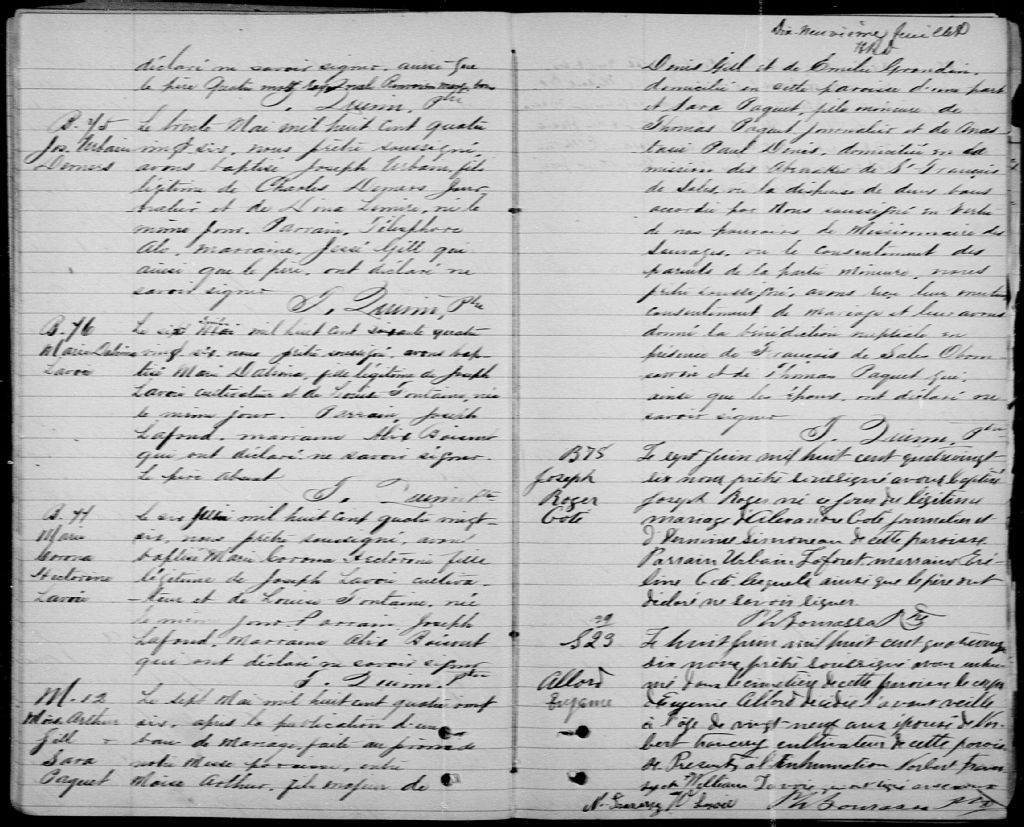 Dix-neuvième feuillet
déclaré ne savoir signer, ainsi que
le père Quatre mots nuls
J. Quinn, Ptre
B. 75
Jos. Urbain
Demers
Le trente Mai mil huit cent quatre
vingt six, nous prêtre soussigné
avons baptisé Joseph Urbain, fils
légitime de Charles Demers jour
nalier et de Dina Lemire, né le
même jour. Parrain, Télesphore
Alc. marraine, Jessé Gill qui
ainsi que le père, ont déclaré ne
savoir signer
J. Quinn, Ptre
B. 76
Marie Dalvina
Lavoie
Le six Mai mil huit cent quatre
vingt six, nous prêtre soussigné, avons bap-
tisé Marie Dalvina, fille légitime de Joseph
Lavoie cultivateur et de Louise Fontaine, née
le même jour. Parrain, Joseph
Lafond, marraine Alix Boisvert
qui ont déclaré ne savoir signer.
Le père absent
J. Quinn Ptre
B. 77
Marie
Corona
Hectorine
Lavoie
Le six Juin mil huit cent quatre vingt-
six, nous prêtre soussigné, avons
baptisé Marie Corona Hectorine fille
légitime de Joseph Lavoie cultiva-
-teur et de Louise Fontaine, née
le même jour. Parrain, Joseph
Lafond, Marraine Alix Boisvert
qui ont déclaré ne savoir signer
J. Quinn. Ptre
M. 12
Moïse Arthur
Gill
Sara
Paquet
Le sept Mai mil huit cent quatre vingt
six, après la publication d'un
ban de mariage, faite au prône de
notre Messe paroissiale, entre
Moïse Arthur, fils majeur de
Denis Gill et de Emilie Grondin,
domiciliés en cette paroisse d'une part
et Sara Paquet, fille mineure de
Thomas Paquet journalier et de Anas
tasie Paul Denis, domiciliés en la
mission des Abénakis de St François
de Sales, vu la dispense de deux bans
accordée par Nous soussigné en vertu
de nos pouvoirs de Missionnaire des
Sauvages, vu le consentement des
parents de la partie mineure, nous
prêtre soussigné, avons reçu leur mutuel
consentement de mariage et leur avons
donné la bénédiction nuptiale en
présence de François de Sales Obom
sawin et de Thomas Paquet qui,
ainsi que les époux, ont déclaré ne
savoir signer
J. Quinn, Ptre
B 78
Joseph
Roger
Coté
Le sept Juin mil huit cent quatrevingt
six nous prêtre soussigné avons baptisé
Joseph Roger né ce jour du légitime
mariage d'Alexandre Coté journalier et
d' Simoneau de cette paroisse.
Parrain Urbain Laforet, marraine Eve
line Coté lesquels ainsi que le père ont
déclaré ne savoir signer.
Ph Bourassa Ptre
S 23
Allard
Eugenie
Le huit Juin mil huit cent quatrevingt
six nous prêtre soussigné avons inhu-
mé dans le cimetière de cette paroisse le corps
d'Eugenie Allard décédée avant veille
à l'âge de vingt-neuf ans épouse de Nor-
bert cultivateur de cette parois
se. Présents à l'inhumation Norbert
et William Lavoie
W Lavoie Ph Bourassa Ptre